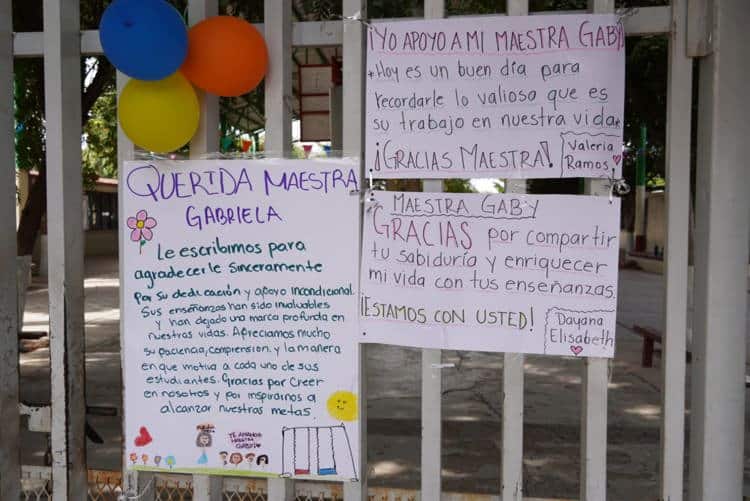 QUERIDA MAESTRA
GABRIELA
Le escribimos para
agradecerle sinceramente
por su dedicación y apoyo incondicional.
Sus enseñanzas han sido invaluables
y han dejado una marca profunda en
nuestras vidas. Apreciamos mucho
su paciencia, comprensión y la manera
en que motiva a cada uno de sus
estudiantes. Gracias por Creer
en nosotros y por inspirarnos a
alcanzar nuestras metas.
¡YO APOYO A MI MAESTRA GABY!
*Hoy es un buen día para
recordarle lo valioso que es
su trabajo en nuestra vida*
¡GRACIAS MAESTRA!
Valeria
Ramos
MAESTRA GABY
GRACIAS por compartir
tu sabiduría y enriquecer
mi vida con tus enseñanzas.
¡ESTAMOS CON USTED!
Dayana
Elisabeth